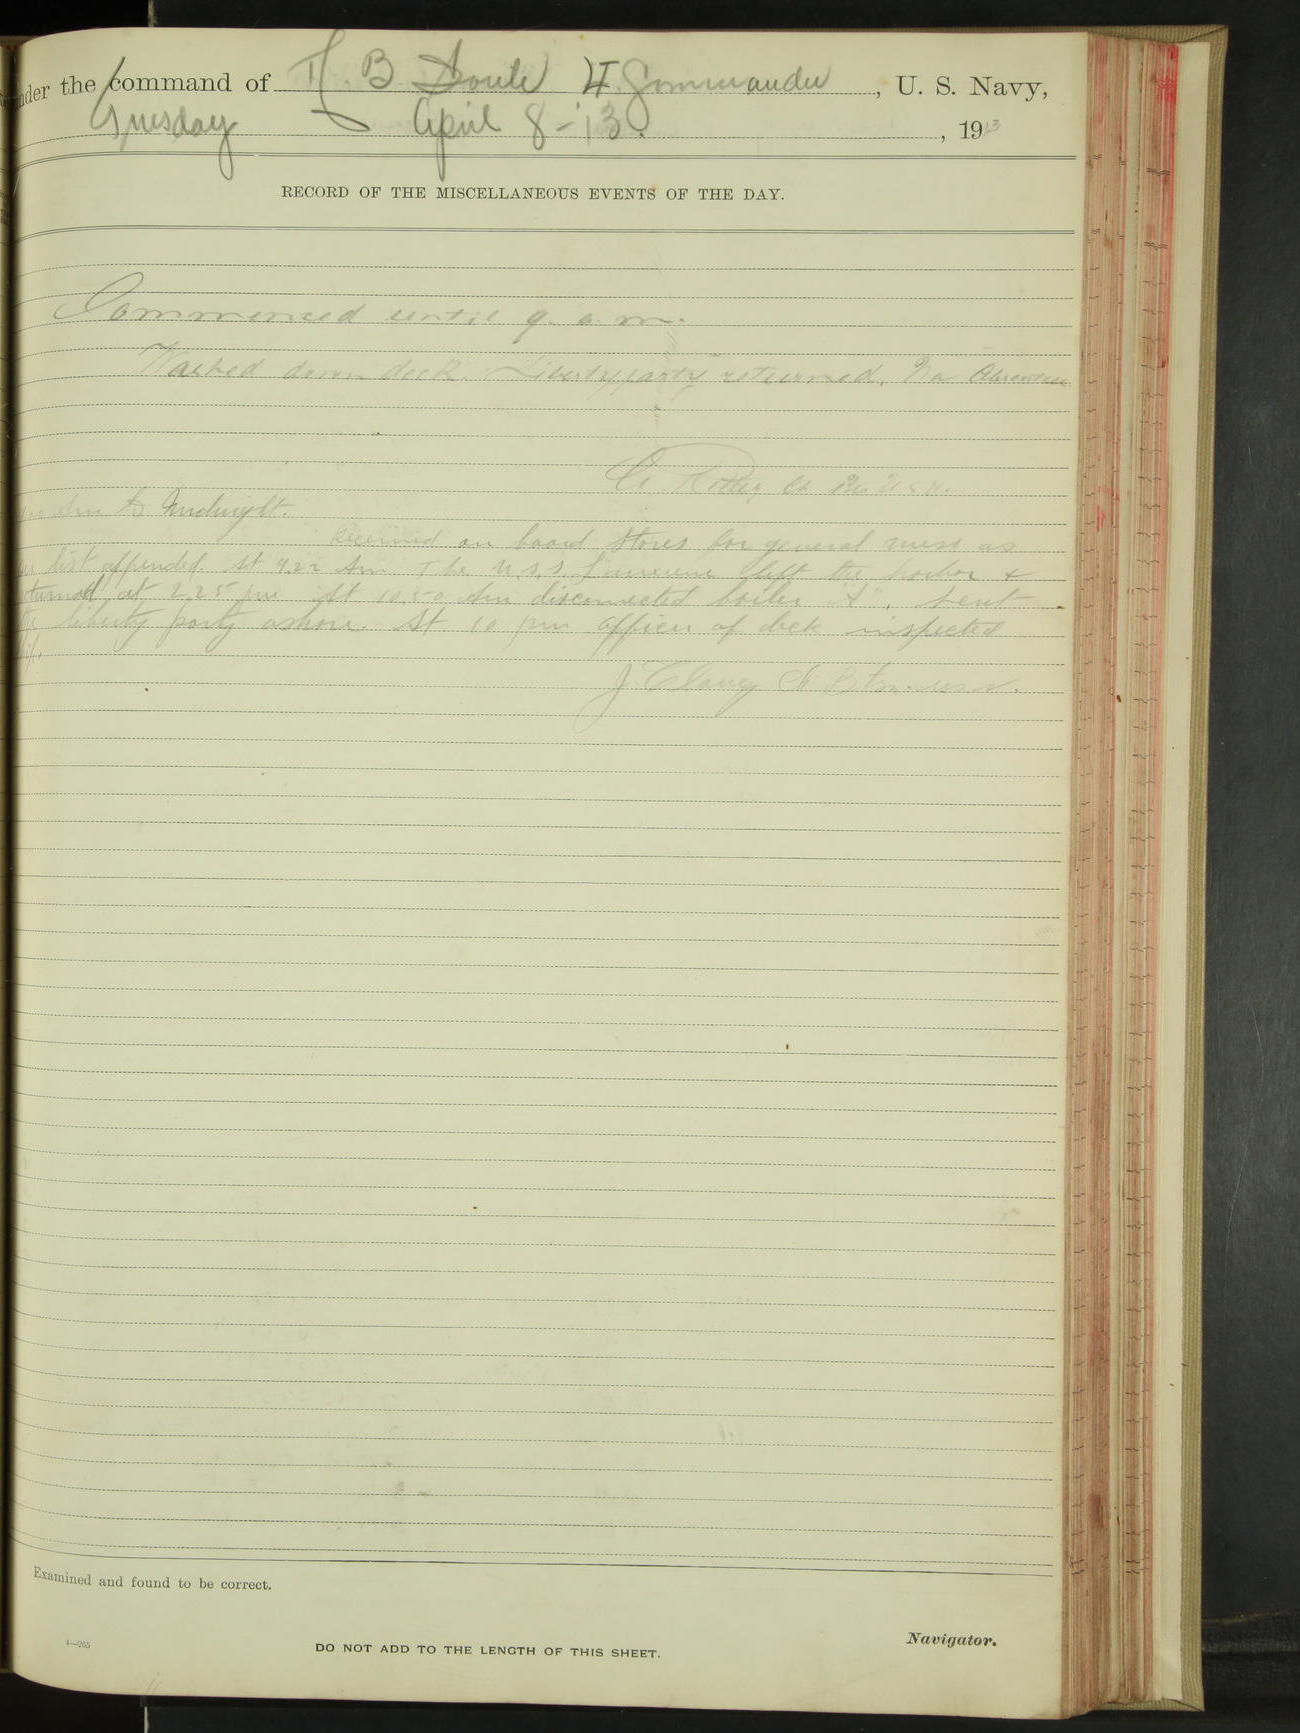 under the command of H. B. Soulé Lt Commander, U. S. Navy,
Tuesday April 8-'13. , 1913
RECORD OF THE MISCELLANEOUS EVENTS OF THE DAY.
Commenced until 9. a. m.
Washed down deck. Liberty party returned. No Absentees
C.
Am to Midnight.
Received on board stores for general mess as
per list appended. At 9.22 Am The U.S.S. Lawrence left the harbor &
returned at 2.25 pm At 10.50 Am disconnected boiler "A". Sent
liberty party ashore. At 10 pm officer of deck inspected
J. Clancy Ch. Btm. U.S.N.
Examined and found to be correct.
4—265
DO NOT ADD TO THE LENGTH OF THIS SHEET.
Navigator.